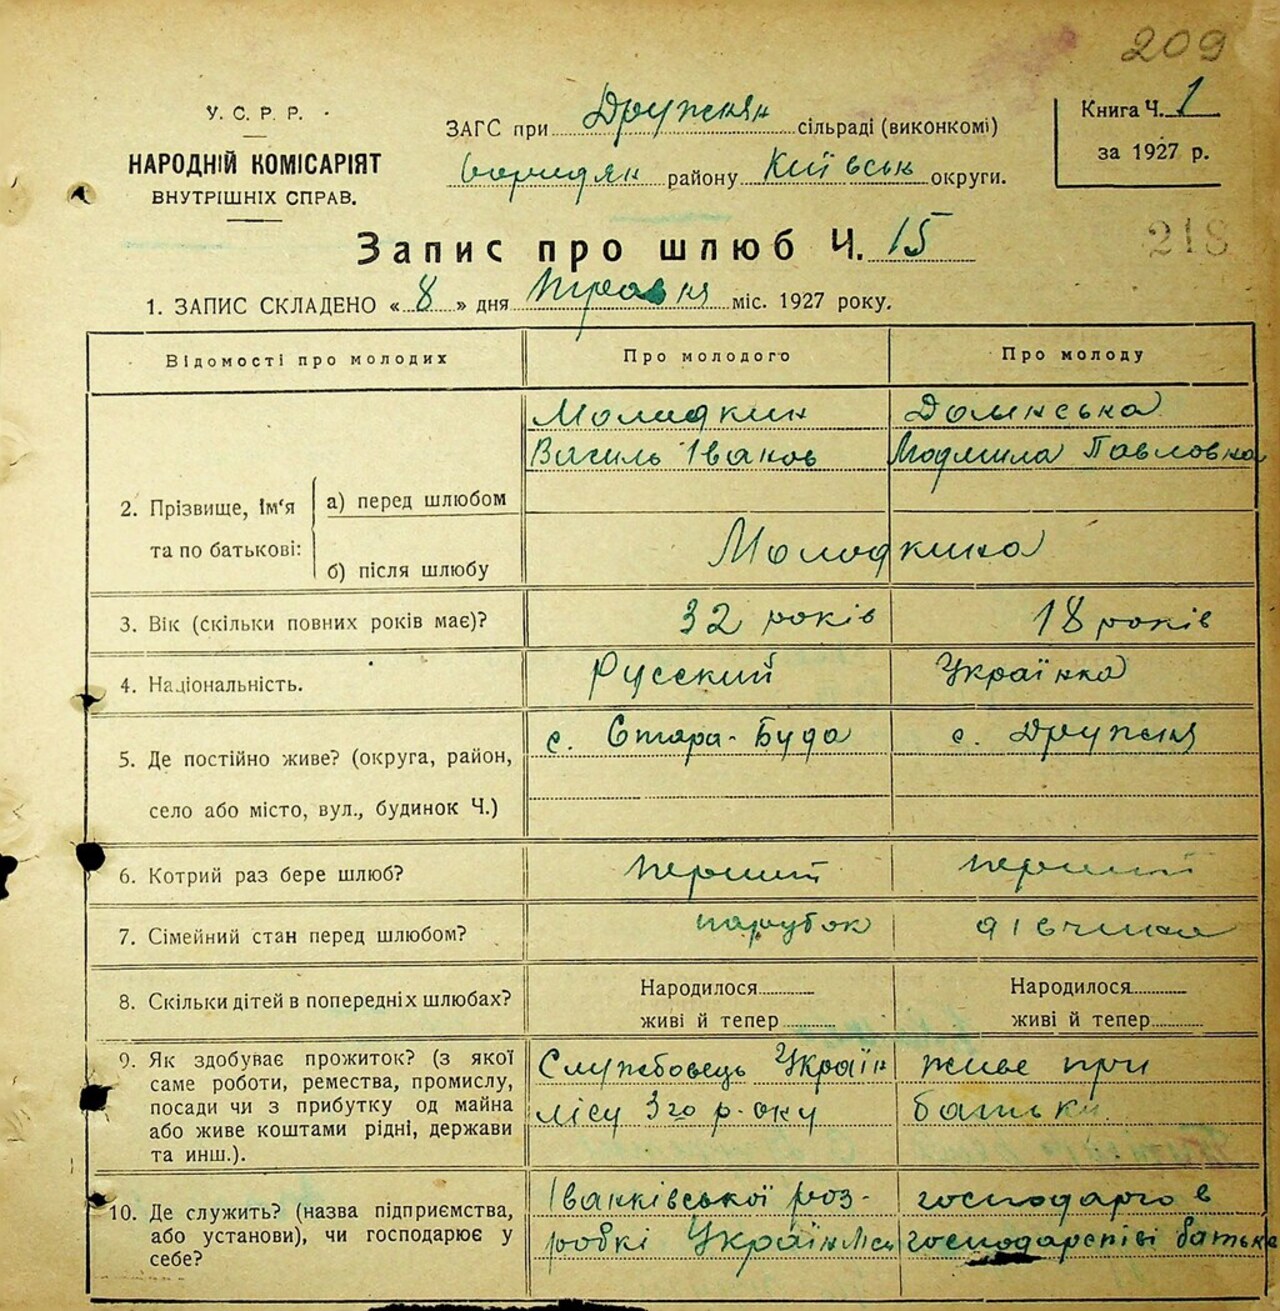 209
У. С. Р. Р.
НАРОДНІЙ КОМІСАРІЯТ
ВНУТРІШНІХ СПРАВ.
ЗАГС при Дружнян сільраді (виконкомі)
Бородян району Київськ округи.
Книга Ч. 1
за 1927 р.
218
Запис про шлюб Ч. 15
1. ЗАПИС СКЛАДЕНО « 8 » дня Травня міс. 1927 року.
Відомості про молодих
Про молодого
Про молоду
2. Прізвище, ім'я та по батькові:
а) перед шлюбом
Молодкин
Василь Іванов
Долинська
Людмила Павловна
б) після шлюбу
Молодкина
3. Вік (скільки повних років має)?
32 років
18 років
4. Національність.
Русский
Українка
5. Де постійно живе? (округа, район,
село або місто, вул., будинок Ч.)
с. Стара-Буда
с. Дружня
6. Котрий раз бере шлюб?
перший
перший
7. Сімейний стан перед шлюбом?
парубок
дівчина
8. Скільки дітей в попередніх шлюбах?
Народилося
живі й тепер
Народилося
живі й тепер
9. Як здобуває прожиток? (з якої
саме роботи, ремества, промислу,
посади чи з прибутку од майна
або живе коштами рідні, держави
та инш.).
Службовець Україн
лісу 3го р. оку
живе при
батьки
10. Де служить? (назва підприємства,
або установи), чи господарює у
себе?
Іванківської роз-
робкі Українліси
господарю в
господарстві батька